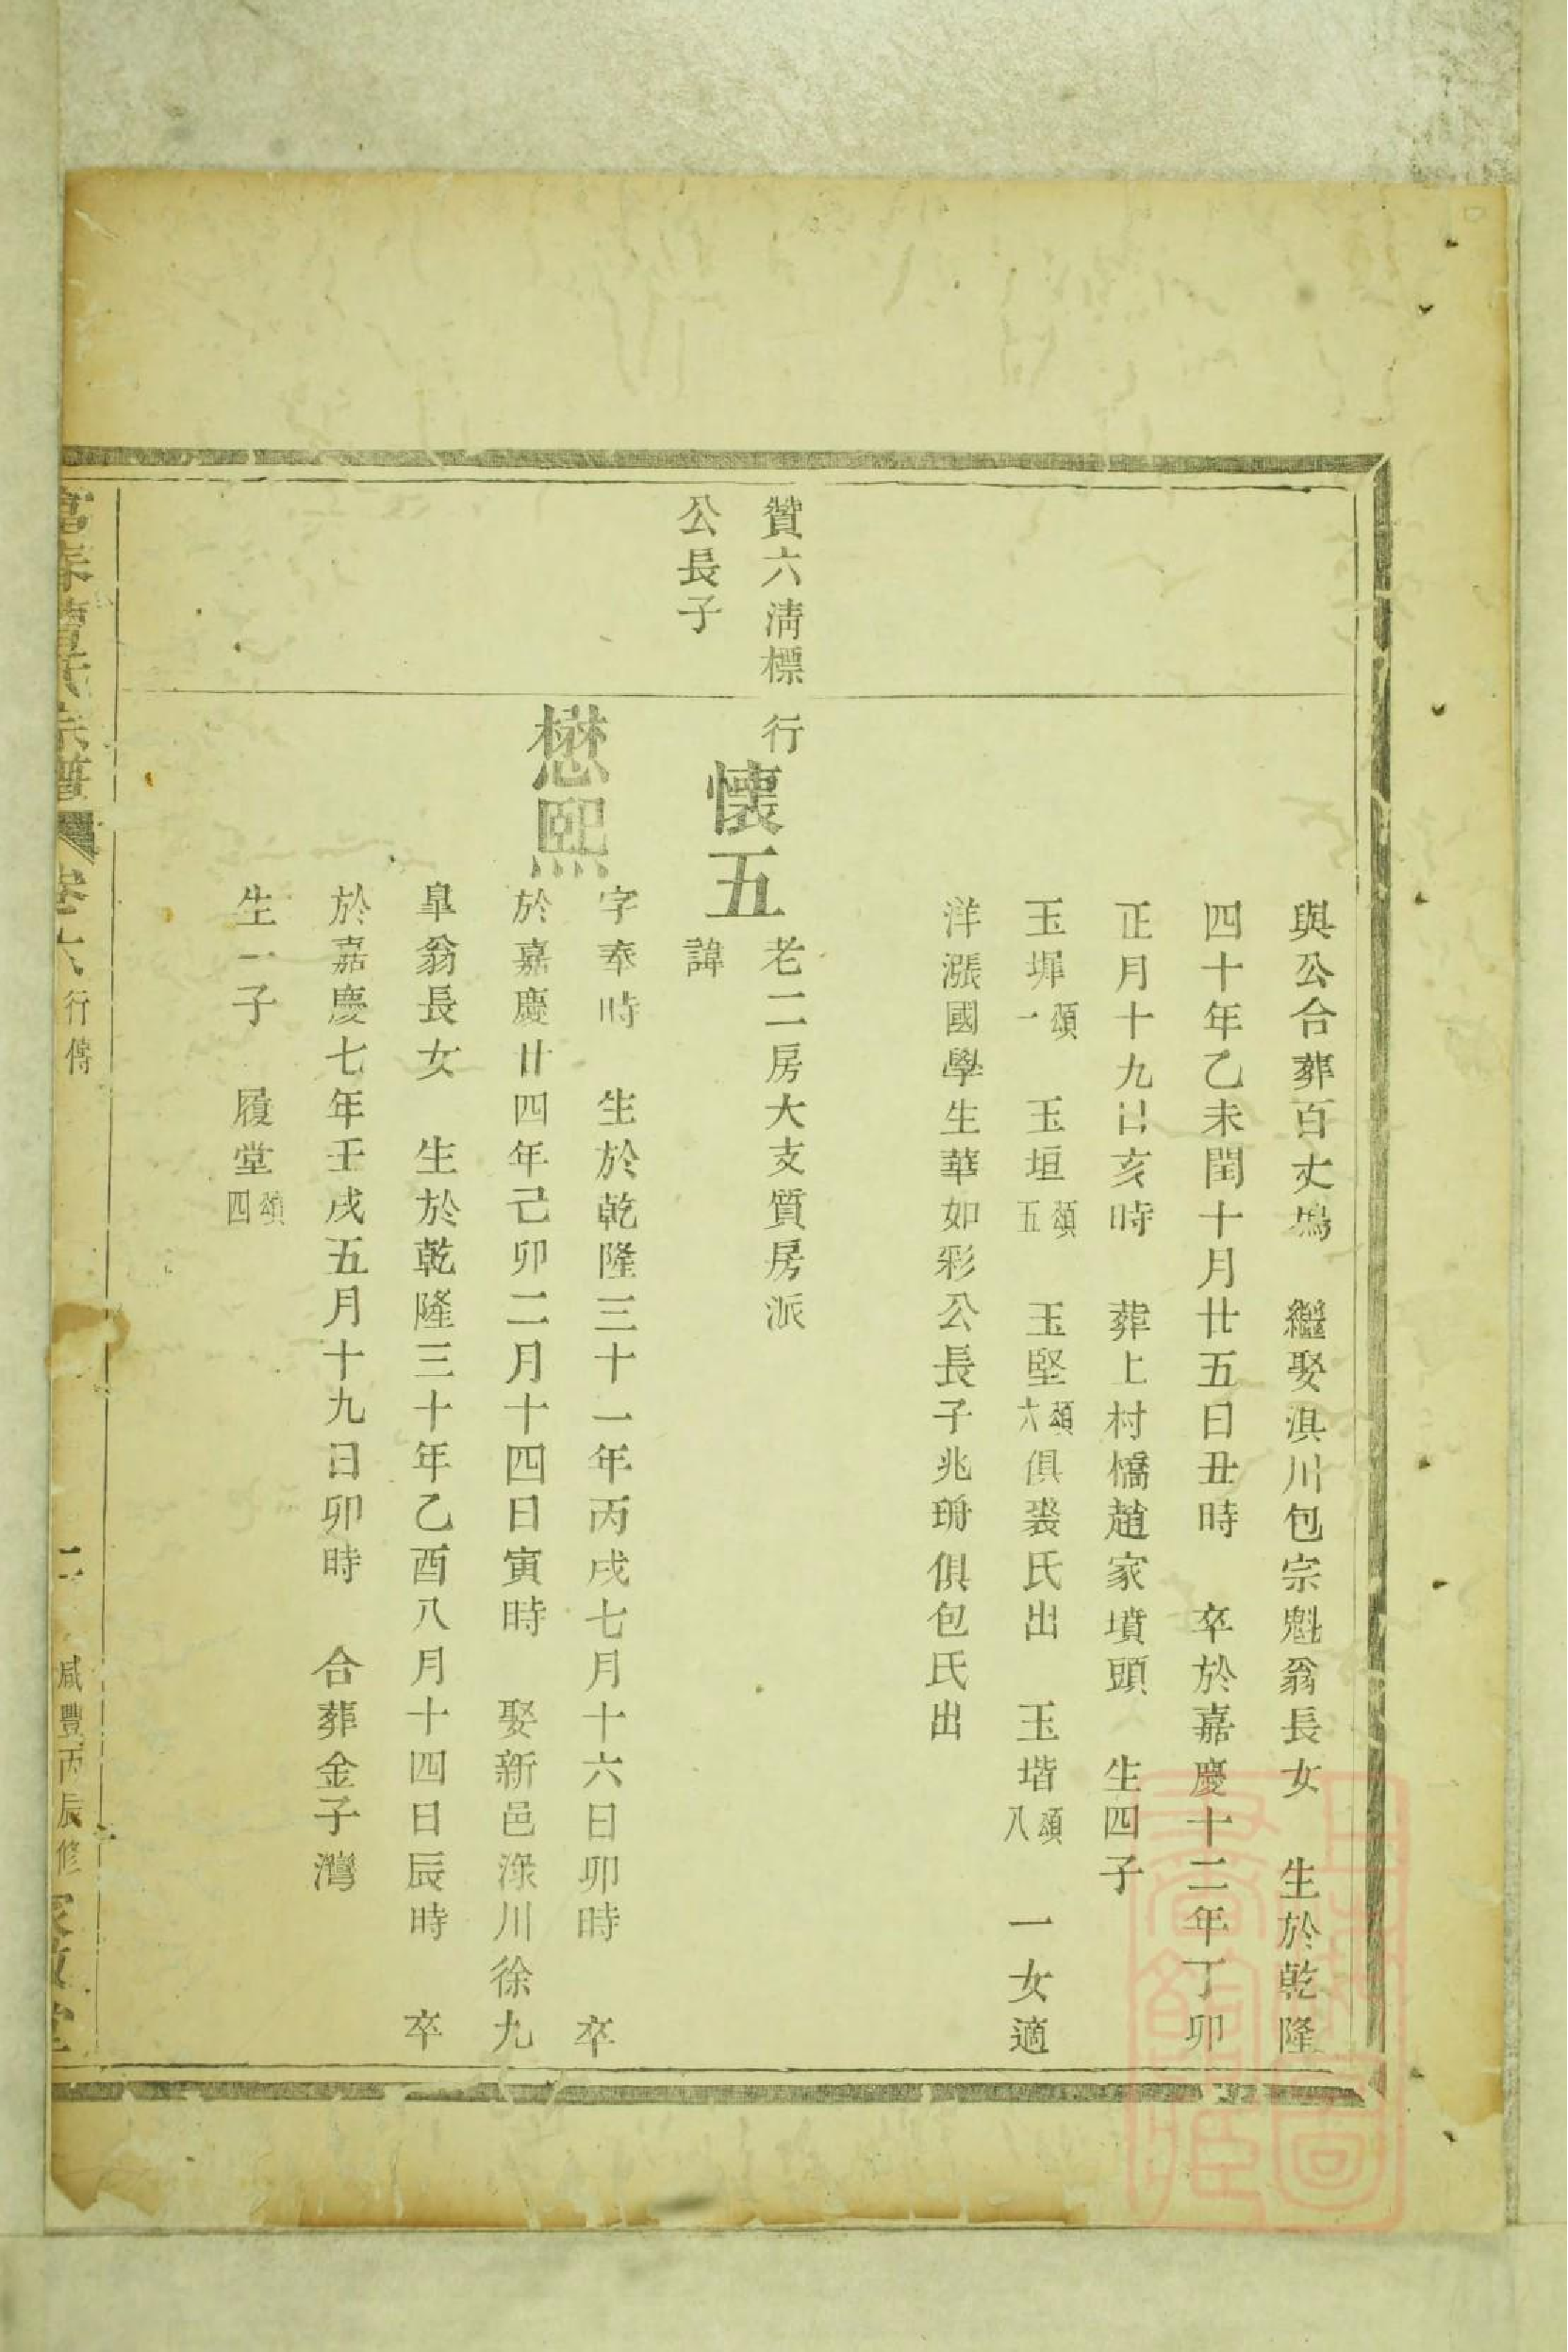 與公合葬百丈塢　繼娶淇川包宗魁翁長女　生於乾隆
四十年乙未閏十月廿五日丑時　卒於嘉慶十二年丁卯
正月十九日亥時　葬上村橋趙家墳頭　生四子
玉墀頌一　玉垣頌五　玉堅頌六俱裘氏出　玉堦頌八　一女適
洋漲國學生華如彩公長子兆俱包氏出
贊六淸標
公長子
行
懷五
老二房大支質房派
諱
懋熙
字奉時　生於乾隆三十一年丙戌七月十六日卯時　卒
於嘉慶廿四年己卯二月十四日寅時　娶新邑淥川徐九
臯翁長女　生於乾隆三十年乙酉八月十四日辰時　卒
於嘉慶七年壬戌五月十九日卯時　合葬金子灣
生一子　履堂頌四
富春氏宗譜　卷六　行傳　咸豐丙辰修